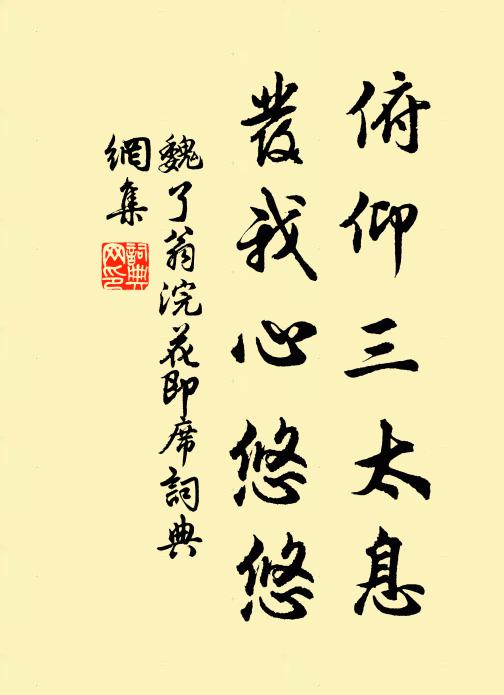 俯仰三太息
發我心悠悠
魏了翁浣花即席詞典
網集
詞典
网印